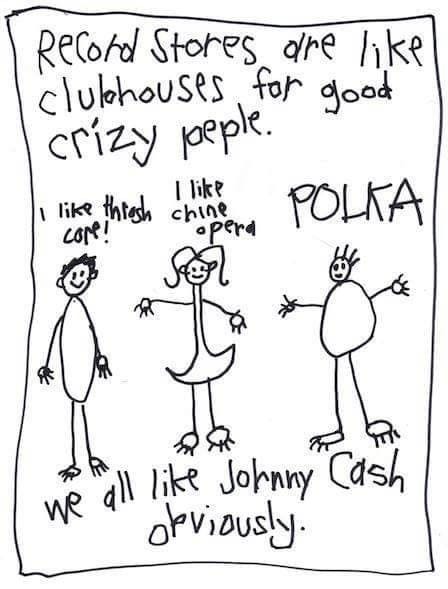 Record Stores are like
clubhouses for good
crizy peple.
i like thrash
core!
I like
chine
opera
POLKA
we all like Johnny Cash
obviously.